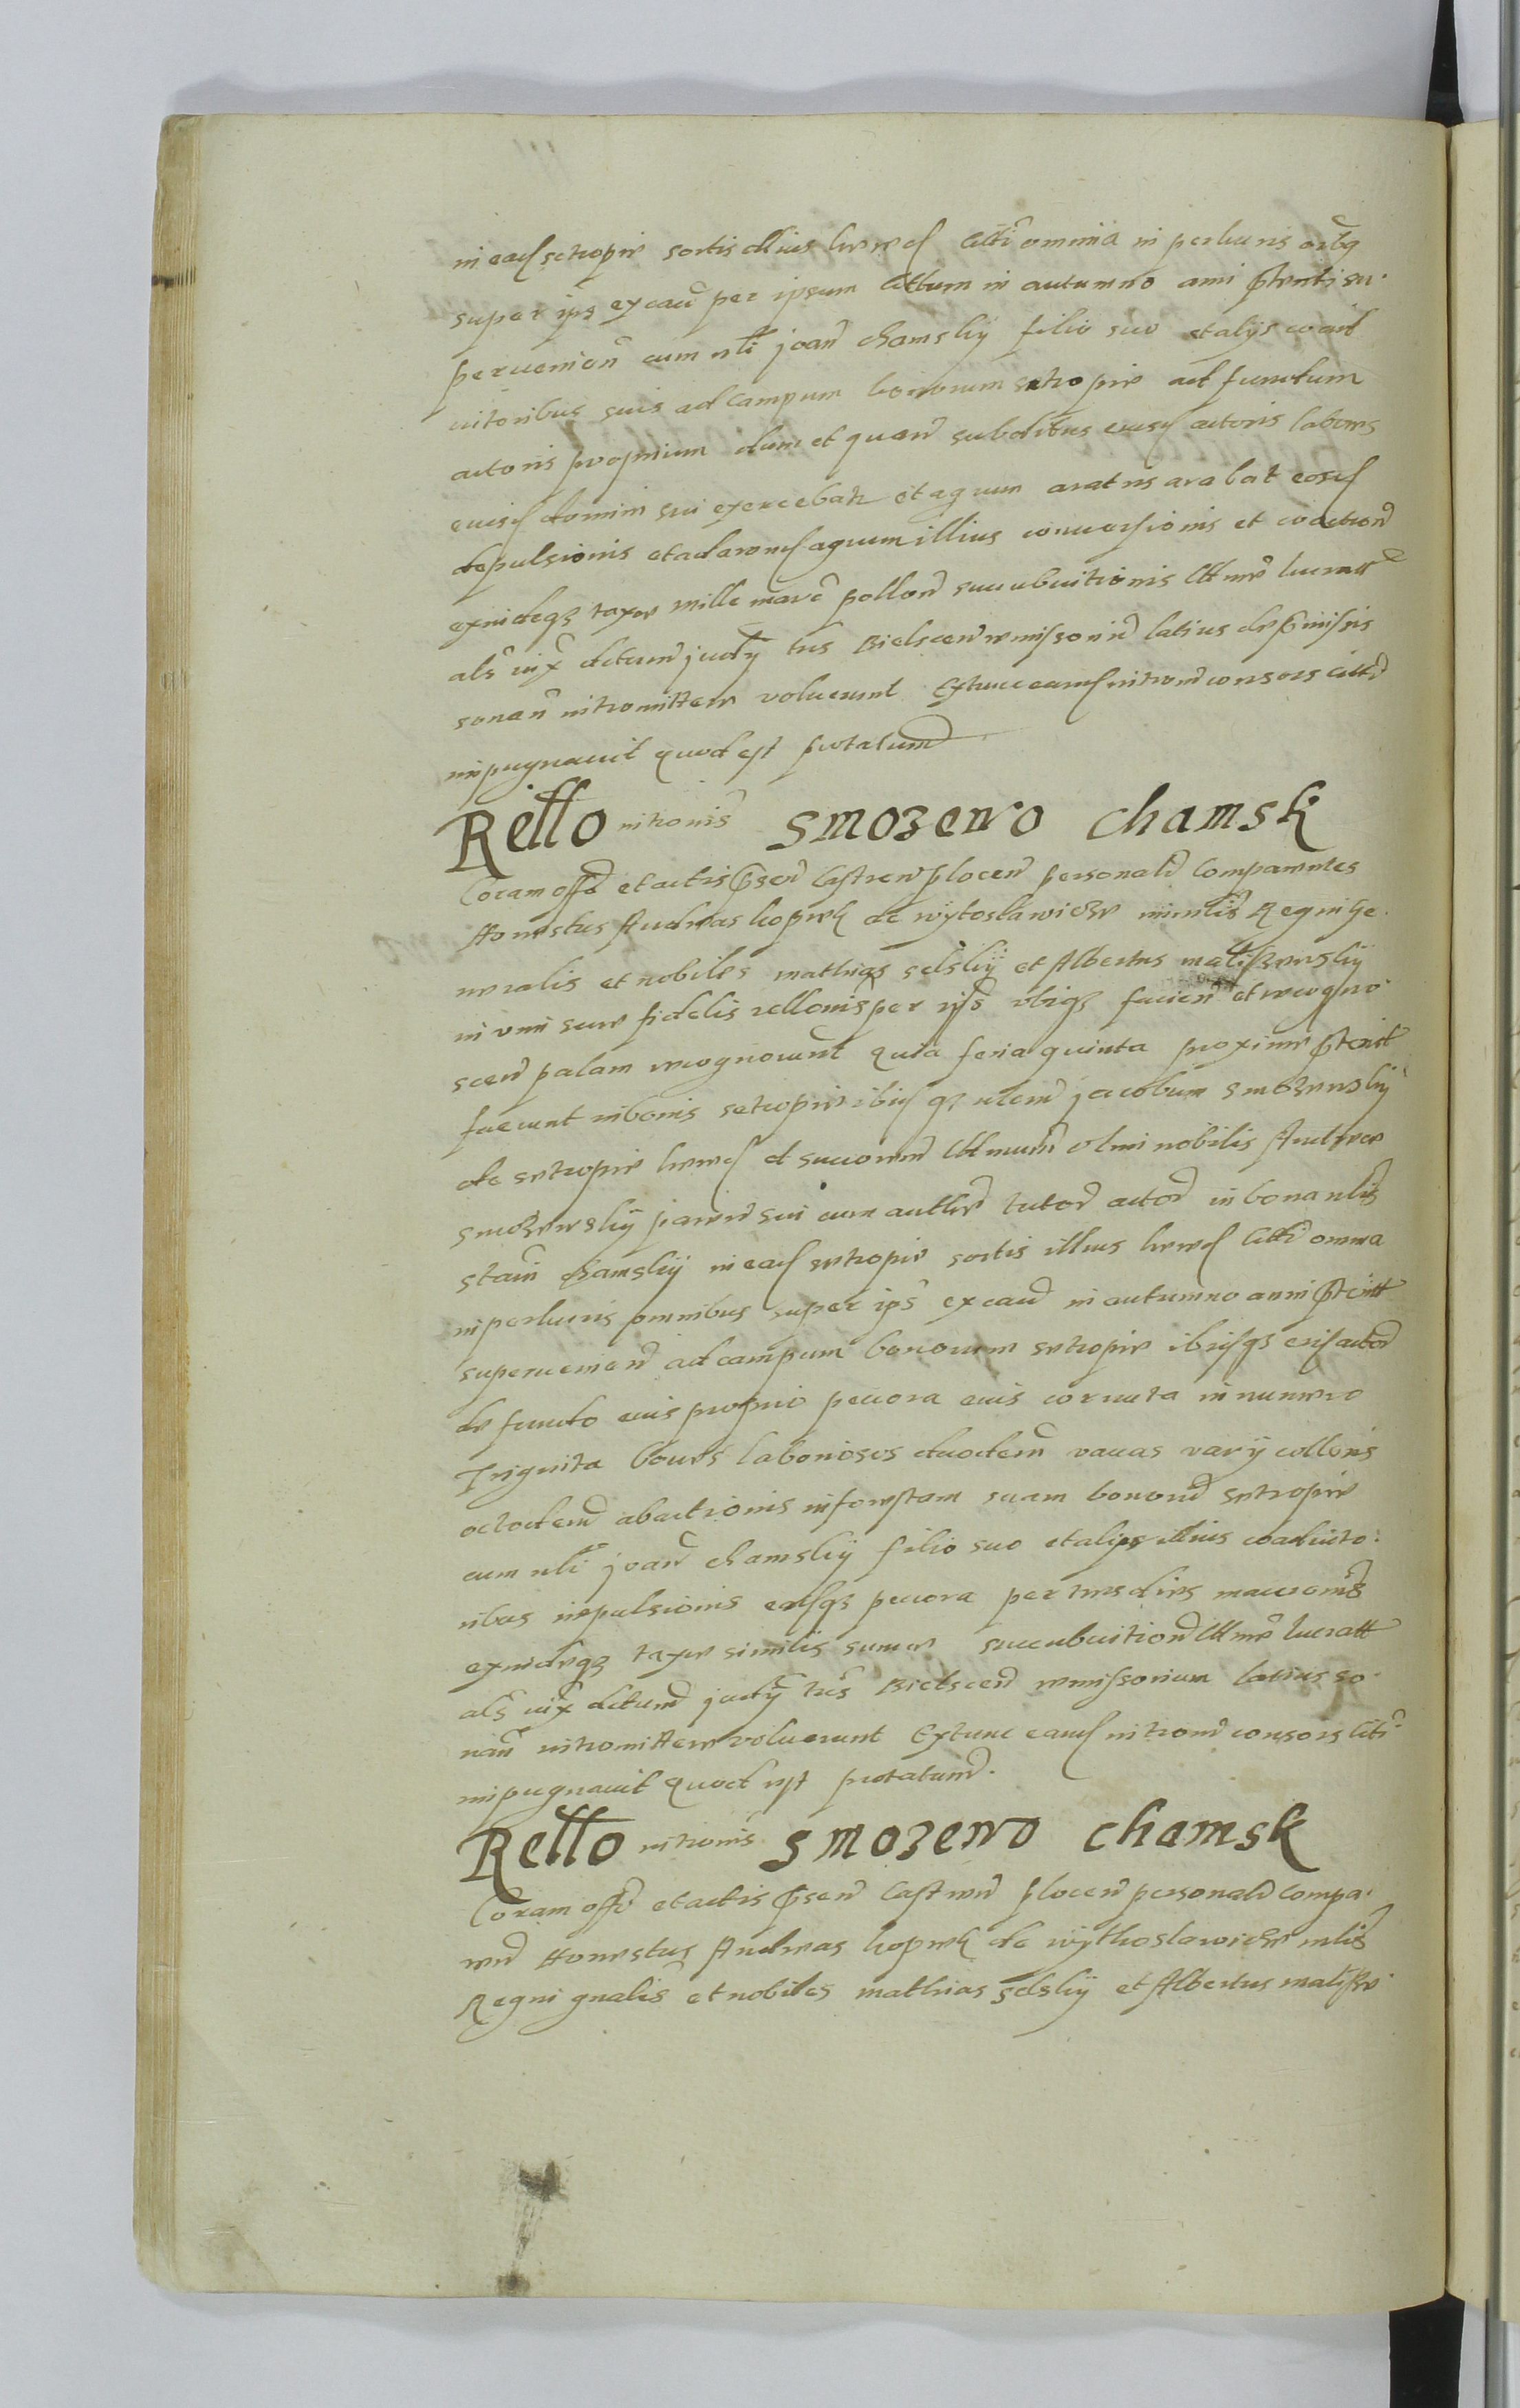 in eade setropie sortis illius herede Actri omnia in perlucris oibq
super ips excaud per ipsum Actum in autumno anni pterti su.
pervenien cum nli joan chamskij filio suo et alijs coad
iutoribus suis ad campum bonorum setropie ad fundum
actoris proprium dum et quand subditus eiusd actoris labores
eiusd domini sui exercebat et agrum aratris arabat eosd
depulsionis et ad arend agrum illius conversionis et coaction
exindeqz taxe mille marc pollon succubuitionis
als iux ditum judy tris Bielscen remissorium latius de pmissis
sonan intromittere voluerunt Extunc eand introm consors citti
impugnavit quod est protatum
Rello intromis Smozewo chamsk
Coram offo et actis psen Castren plocen personalr Comparentes
Honestus Andreas kopek de wytoslawicze minilis Regni Ge
neralis et nobiles mathias selskij et Albertus maliszewskij
in vim sue fidelis rellonis per ips ibiqz facien et recogno
scen palam recognoverunt quia feria quinta proxime pterit
fuerunt in bonis setropie ibiqz nlem jacobum smozewskij
de setropie herede et succorem olim nobilis Andree
smozewskij paren sui cum aucthe tutor actor in bona nlis
stani chamskij in ead setropie sortis illius herede Acttri omnia
in perlucris omnibus super ips excaud in autumno anni pterit
supervenien ad campum bonorum setropie ibiqz eius actor
de fundo eius proprio pecora eius cornuta in numero
Triginta boves laboriosos duodecim vacas varij colloris
octodecim abactionis in forestam suam bonorum setropie
cum nli joan chamskij filio suo et alijs illius coadiuto:
ribus impulsionis eadqz pecora per tres dies maceronis
exindeqz taxe similis summe succubuition lucratt
als iux ditum judy tris Bielscen remissorium latius so
nan intromittere voluerunt Extunc eand introm consors citti
impugnavit quod est protatum.
Rello intromis Smozewo chamsk
Coram offo et actis psen Castren plocen personalr compa.
ren Honestus Andreas kopek de wythoslawicze mlis
Regni gnalis et nobiles mathias selskij et Albertus malisze